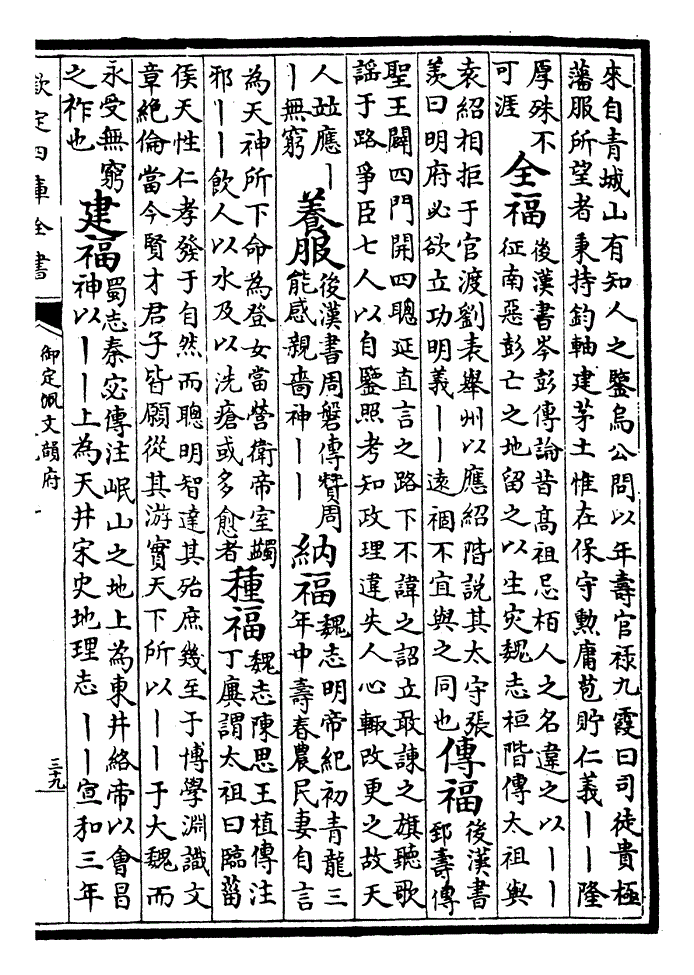 來自青城山有知人之鑒烏公問以年壽官禄九霞曰司徒貴極
藩服所望者秉持鈞軸建茅土惟在保守勲庸苞貯仁義丨丨隆
厚殊不
可涯
全福
後漢書岑彭傳論昔髙祖忌栢人之名違之以丨丨
征南惡彭亡之地留之以生灾魏志桓階傳太祖與
袁紹相拒于官渡劉表舉州以應紹階説其太守張
羨曰明府必欲立功明義丨丨逺禍不宜與之同也
傳福
後漢書
郅壽傳
聖王闢四門開四聰延直言之路下不諱之詔立敢諫之旗聽歌
謡于路爭臣七人以自鑒照考知政理違失人心輙改更之故天
人竝應丨
丨無窮
養服
後漢書周磐傳賛周
能感親嗇神丨丨
納福
魏志明帝紀初青龍三
年中壽春農民妻自言
為天神所下命為登女當營衛帝室蠲
邪丨丨飲人以水及以洗瘡或多愈者
種福
魏志陳思王植傳注
丁廙謂太祖曰臨菑
侯天性仁孝發于自然而聰明智達其殆庶幾至于博學淵識文
章絶倫當今賢才君子皆願從其游實天下所以丨丨于大魏而
永受無窮
之祚也
建福
蜀志秦宓傳注岷山之地上為東井絡帝以會昌
神以丨丨上為天井宋史地理志丨丨宣和三年
欽定四庫全書
御定佩文韻府
三十九